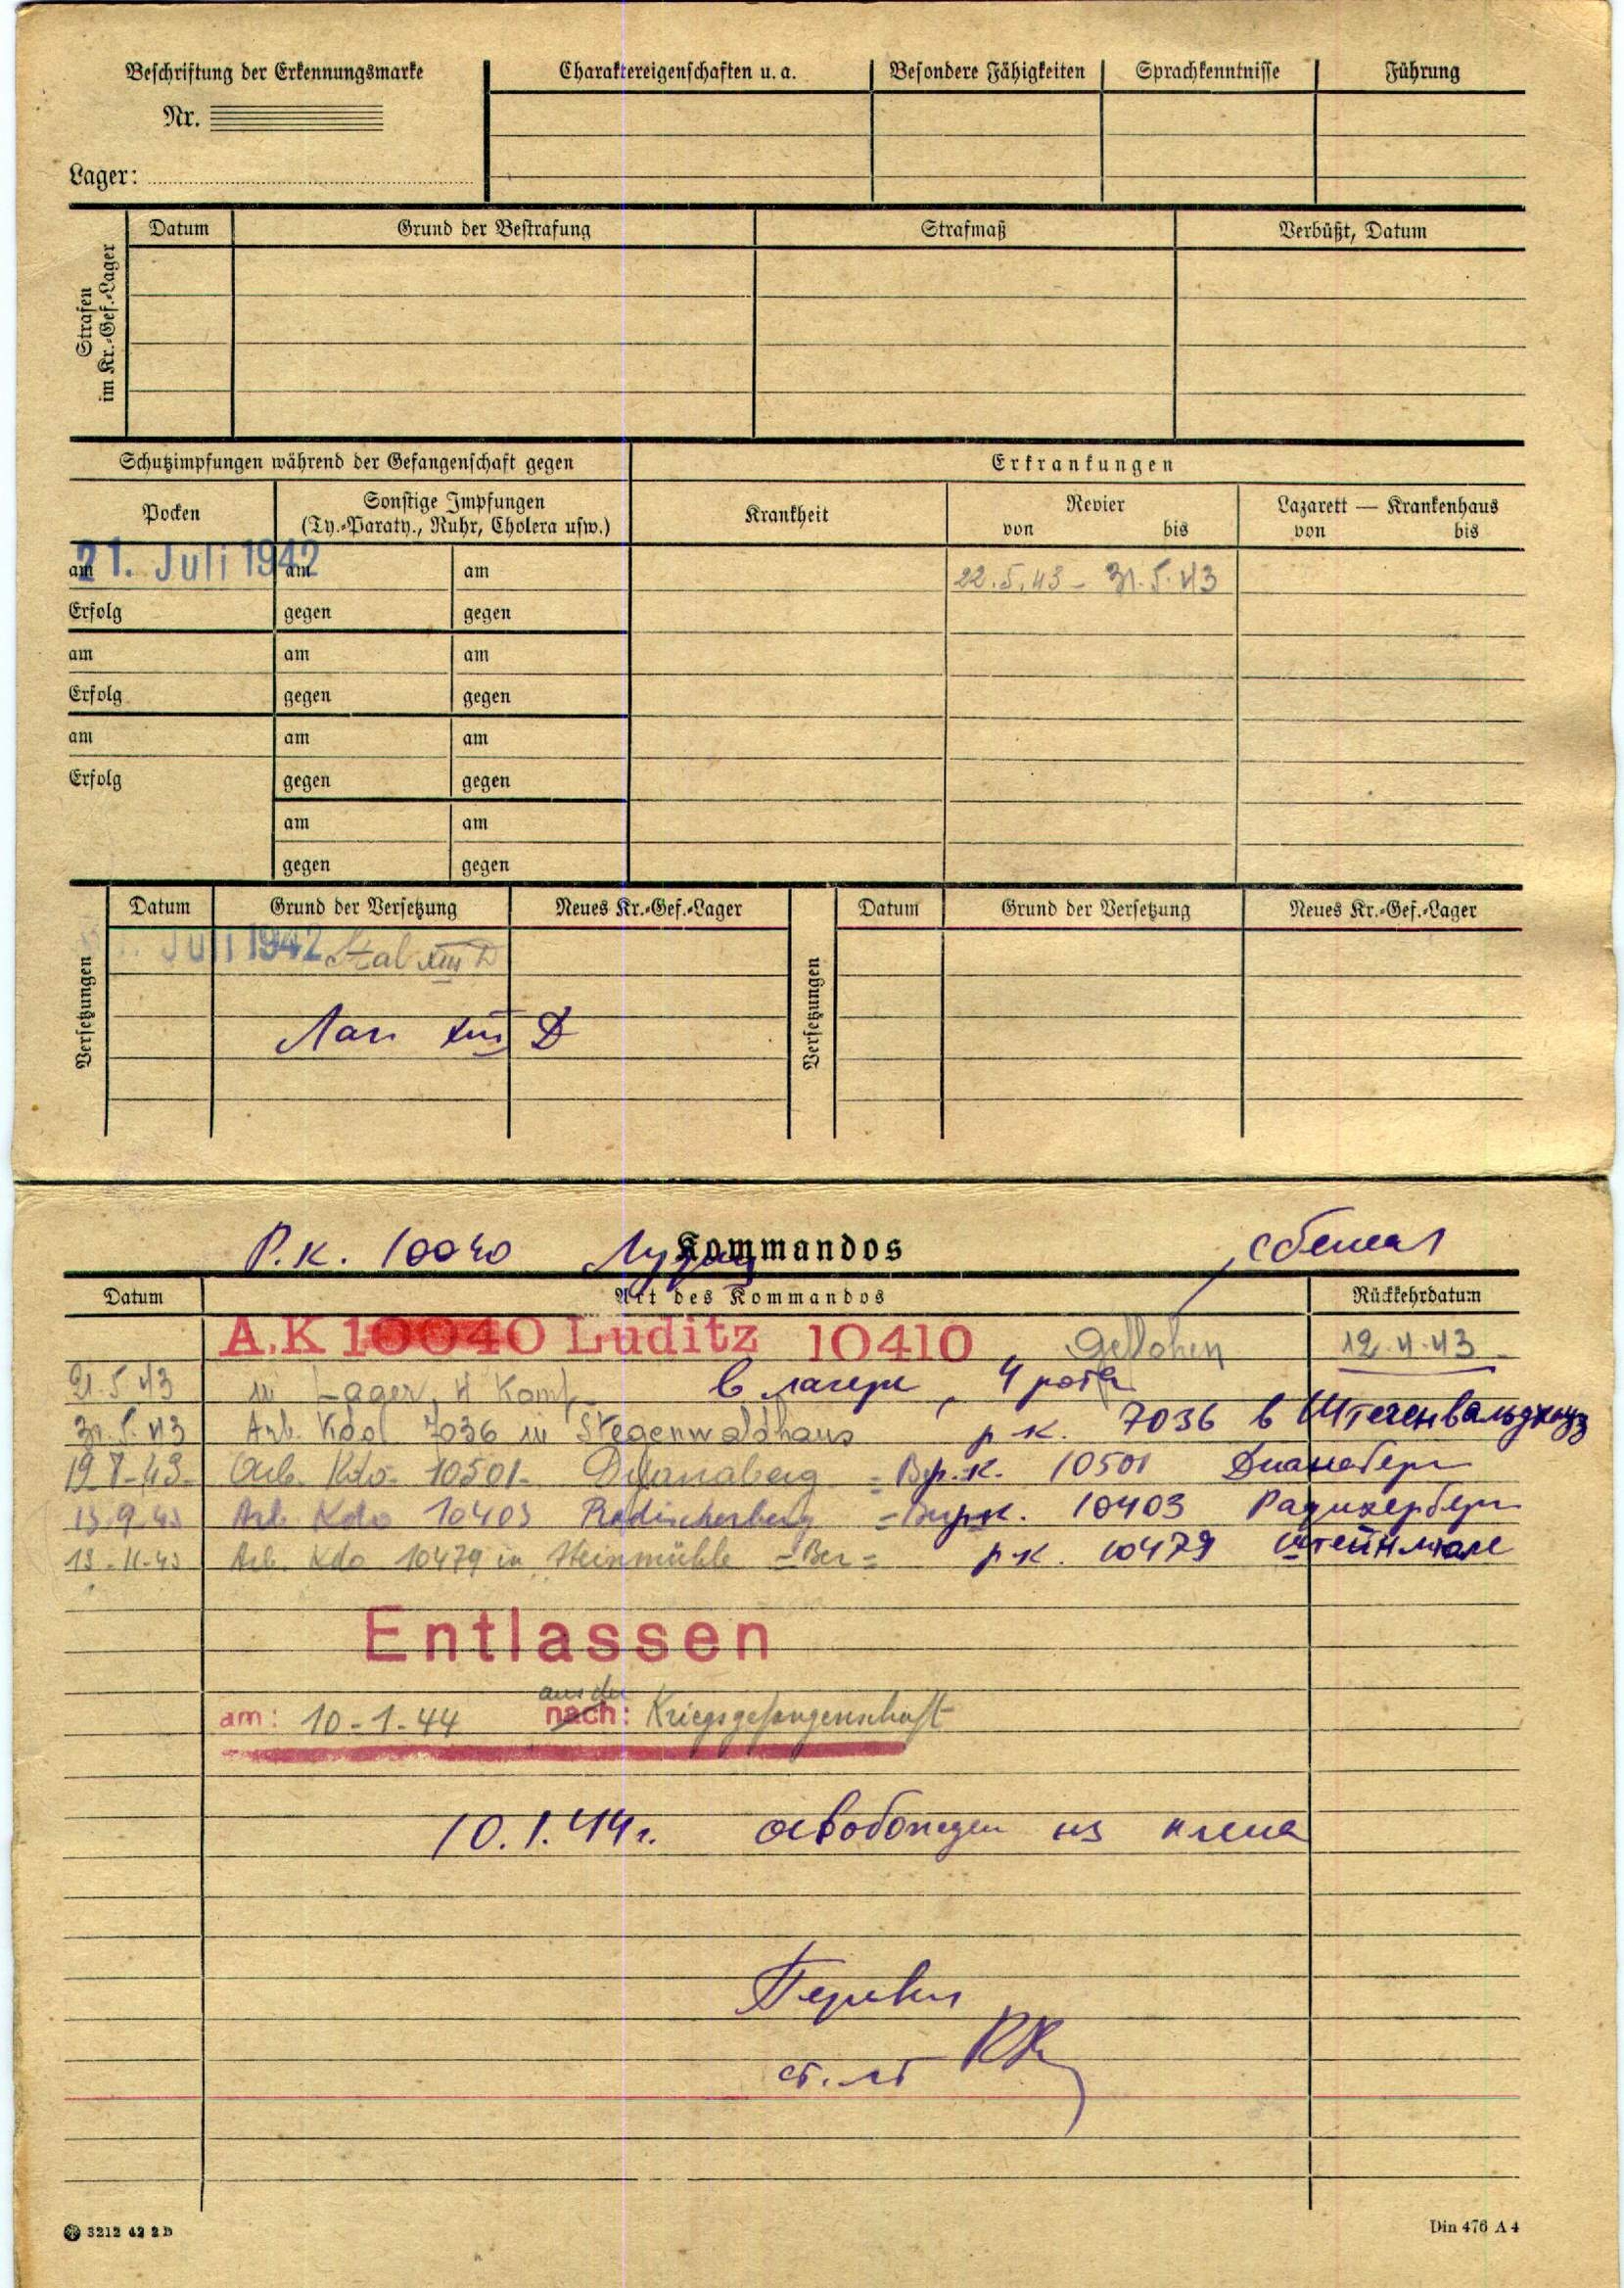 Beschriftung der Erkennungsmarke
Nr.
Lager:
Charaktereigenschaften u. a. Besondere Fähigkeiten Sprachkenntnisse Führung
Strafen
im Kr.-Gef.-Lager
Datum Grund der Bestrafung Strafmaß Verbüßt, Datum
Schutzimpfungen während der Gefangenschaft gegen Erkrankungen
Pocken
Sonstige Impfungen
(Ty.-Paraty., Ruhr, Cholera usw.)
Krankheit
Revier
von bis
Lazarett — Krankenhaus
von bis
21. Juli 1942
am am am 22.5.43 - 31.5.43
Erfolg gegen gegen
am am am
Erfolg gegen gegen
am am am
Erfolg gegen gegen
am am
gegen gegen
Versetzungen
Datum Grund der Versetzung Neues Kr.-Gef.-Lager
Juli 1942 Stal XIII D
XIII D
Versetzungen
Datum Grund der Versetzung Neues Kr.-Gef.-Lager
Р.к. 10040 Kommandos сбежал
Datum Art des Kommandos Rückkehrdatum
A.K 10040 Luditz 10410 Geflohen 12.4.43
21.5.43 in Lager, 4 Komp. в лагере, 4 рота
31.5.43 Arb. Kdo 7036 in Stegenwaldhaus р.к. 7036 в Штегенвальдхауз
Arb. Kdo. 10501- Dianaberg р.к. 10501 Дианаберг
13.9.43 Arb. Kdo 10403 Radischerberg р.к. 10403 Радишерберг
13-11-43 Arb. Kdo 10479 in Steinmühle - Ber = р.к. 10479 Штейнмюле
Entlassen
aus der
am: 10-1-44 nach: Kriegsgefangenschaft
10.1.44г. освобожден из плена
Перевел
ст. лт
3212 42 2 D
Din 476 A 4